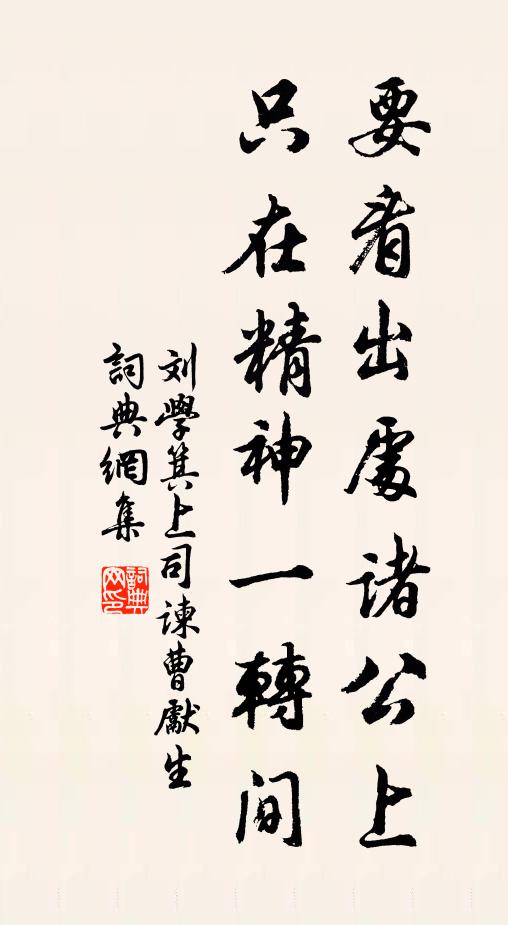 要看出處諸公上
只在精神一轉間
刘學箕上司諫曹獻生
詞典網集
詞典網印